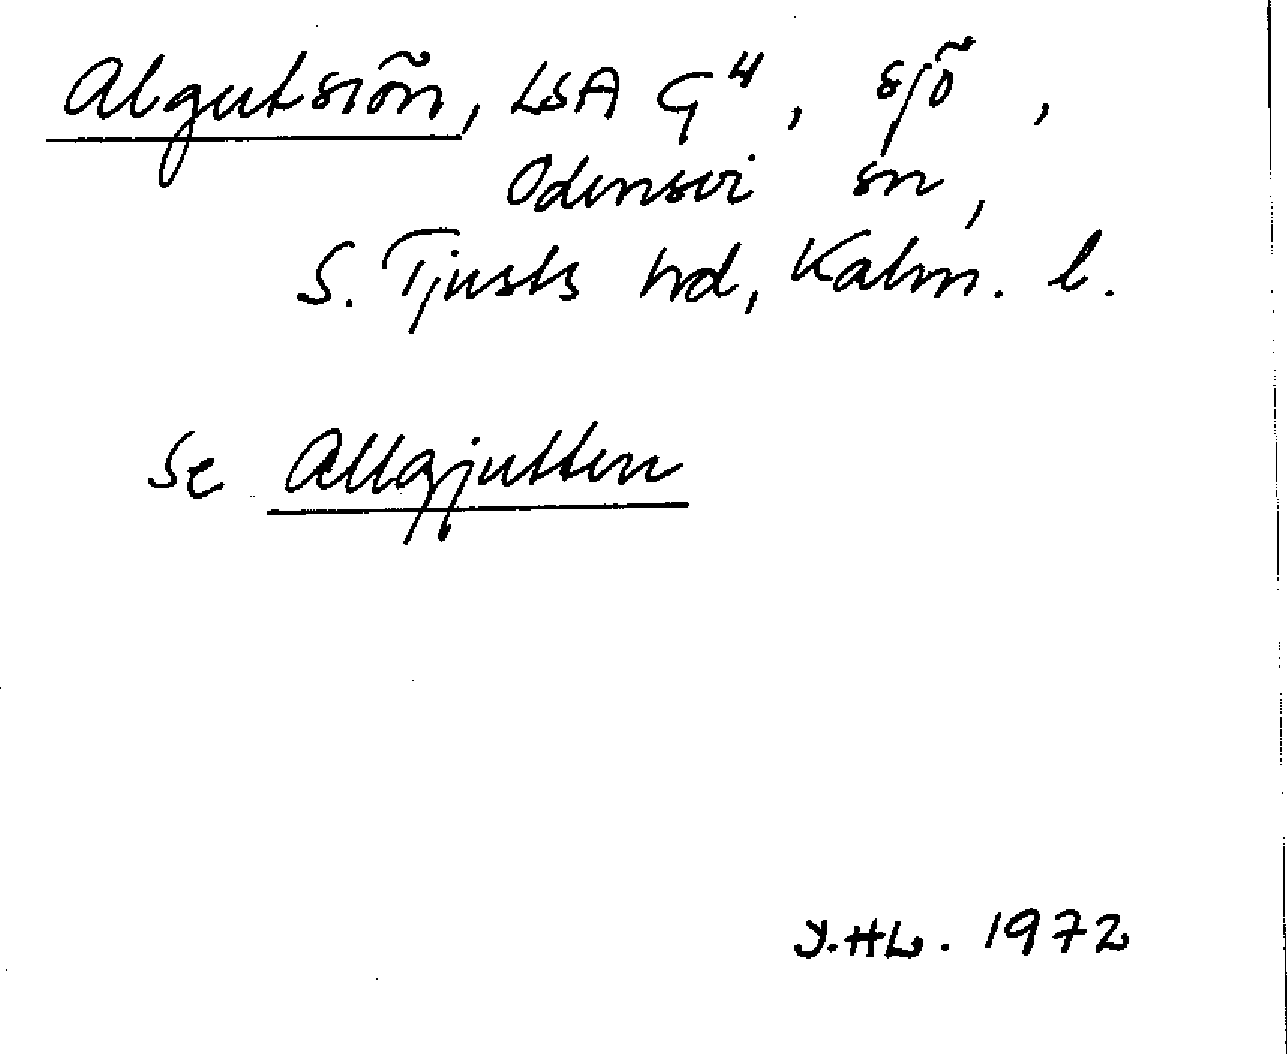 Algutsiön, LSA G4, sjö,
Odensvi sn,
S. Tjusts hd, Kalm. l.
Se Allgjutten
Y.HL. 1972